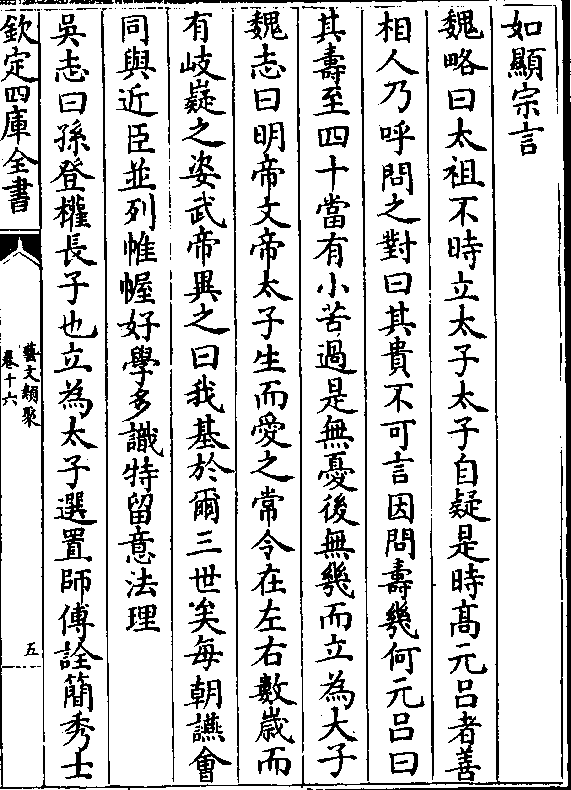 如顯宗言
魏略曰太祖不時立太子太子自疑是時髙元吕者善
相人乃呼問之對曰其貴不可言因問壽幾何元吕曰
其壽至四十當有小苦過是無憂後無幾而立為大子
魏志曰明帝文帝太子生而愛之常令在左右數歲而
有岐嶷之姿武帝異之曰我基於爾三世矣每朝讌會
同與近臣並列帷幄好學多識特留意法理
吳志曰孫登權長子也立為太子選置師傅詮簡秀士
欽定四庫全書
藝文類聚
卷十六
五